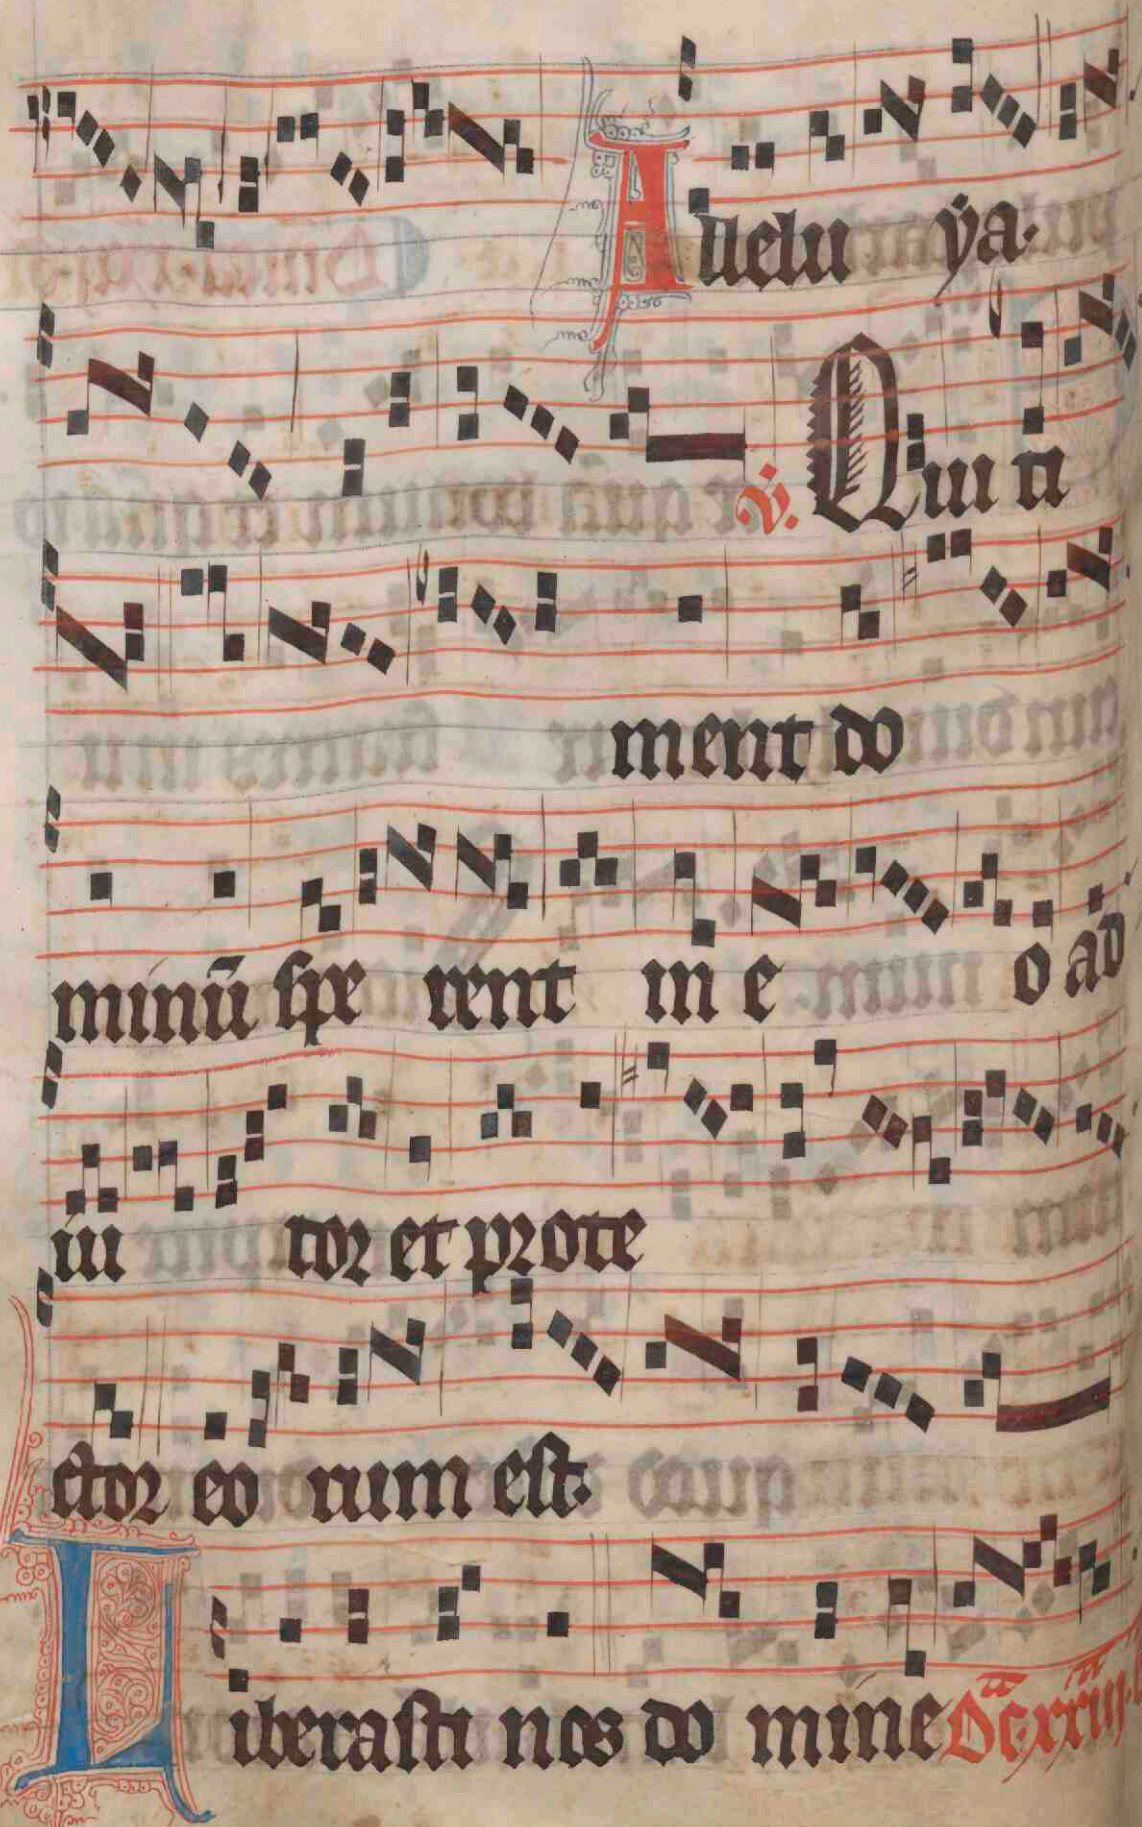 Allelu ÿa.
v. Qui ti
ment do
minū spe rent in e o ad
iu tor et prote
ctor eo rum est.
Liberasti nos do mine Dc̄.xxiij.